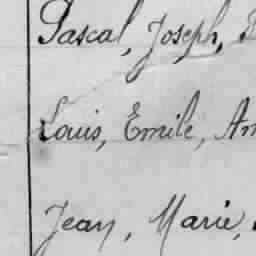 Pascal, Joseph,
Louis, Emile, Am
Jean, Marie,